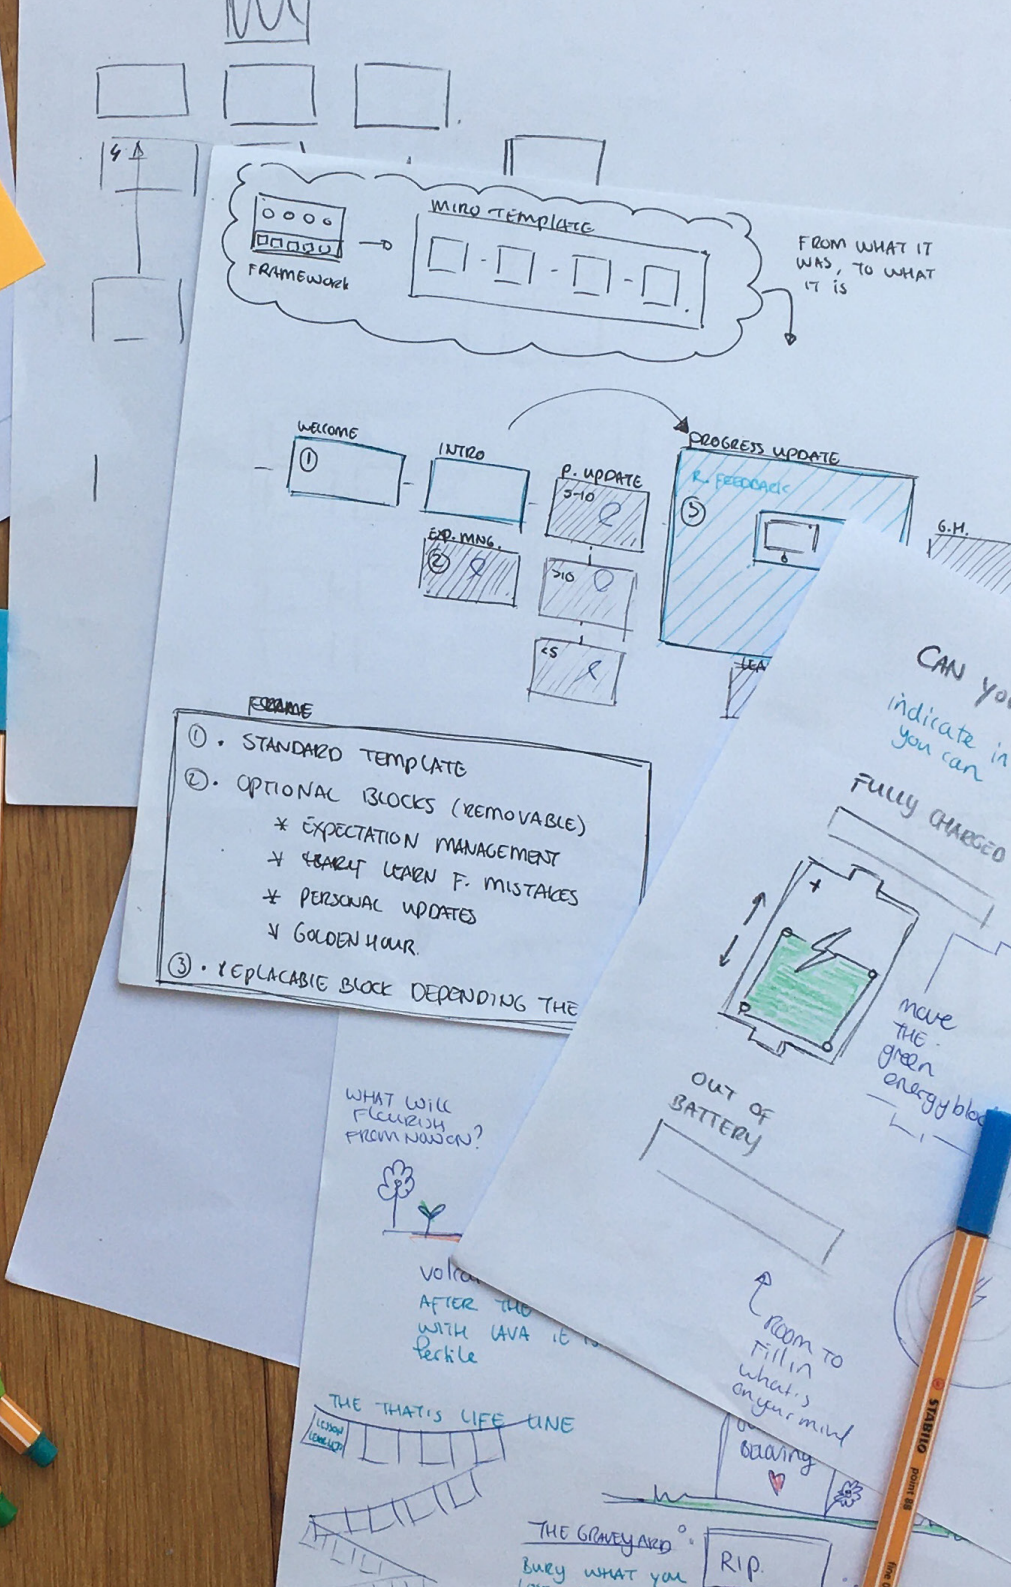 MIRO TEMPLATE
FRAMEWORK
FROM WHAT IT
WAS, TO WHAT
IT is
WELCOME
1
INTRO
EXP. MNG.
2
P. UPDATE
5-10
>10
<5
PROGRESS UPDATE
R. FEEDBACK
3
G.H.
FRAME
1. STANDARD TEMPLATE
2. OPTIONAL BLOCKS (REMOVABLE)
* EXPECTATION MANAGEMENT
* LEARN F. MISTAKES
* PERSONAL UPDATES
* GOLDEN HOUR.
3. REPLACABLE BLOCK DEPENDING THE
CAN YOU
indicate in
you can
FULLY CHARGED
+
move
THE
green
energyblo
OUT OF
BATTERY
ROOM TO
Fill in
what's
on your mind
WHAT WILL
FLOURISH
FROM NOW ON?
AFTER THE
WITH LAVA IT IS
fertile
THE THAT'S LIFE LINE
LESSON
LEARNED
THE GRAVEYARD
BURY WHAT YOU
R.I.P.
STABILO
point 88
fine